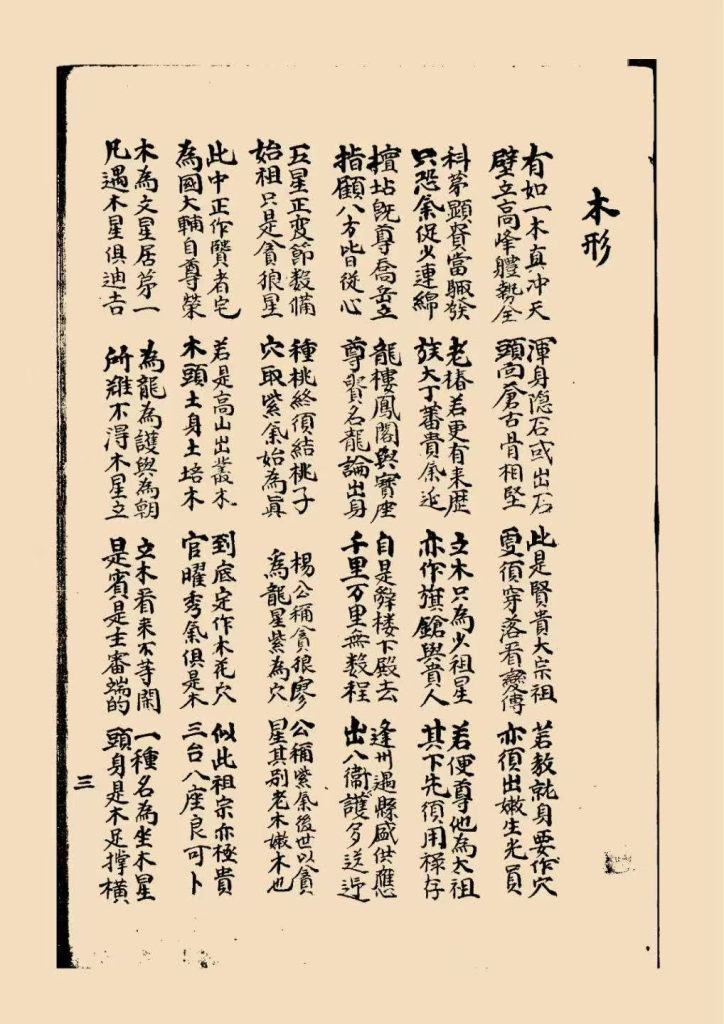 木形
有如一木真冲天
壁立高峰體勢全
渾身隐石或出石
頭高蒼古骨相堅
此是賢貴大宗祖
須穿落看變傳
若教就身要作穴
亦須出嫩生光員
科苐顯貴當驟發
只恐氣促少連綿
老椿若更有来歷
族大丁蕃貴氣延
立木只為少祖星
亦作旗鎗與貴人
若便尊他為太祖
其下先須用梯存
坫既尊喬岳立
指顧八方皆從心
龍樓鳳閣與寶座
尊貴名龍論出身
自是辭楼下殿去
千里万里無数程
逢州遇縣盛供應
出入衛護多送迎
五星正变節数備
始祖只是貪狼星
種桃終須結桃子
穴取紫氣始為真
楊公稱貪狼廖公稱紫氣後世以貪
為龍星紫為穴星其别老木嫩木也
此中正作賢者宅
為國大輔自尊榮
若是高山出叢木
木頭土身土培木
到底定作木花穴
官曜秀氣俱是木
似此祖宗亦極貴
三台八座良可卜
木為文星居第一
凡遇木星俱迪吉
為龍為護與為朝
所难不淂木星立
立木看来不等閑
是賓是主審端的
一種名為坐木星
頭身是木足撑橫
三